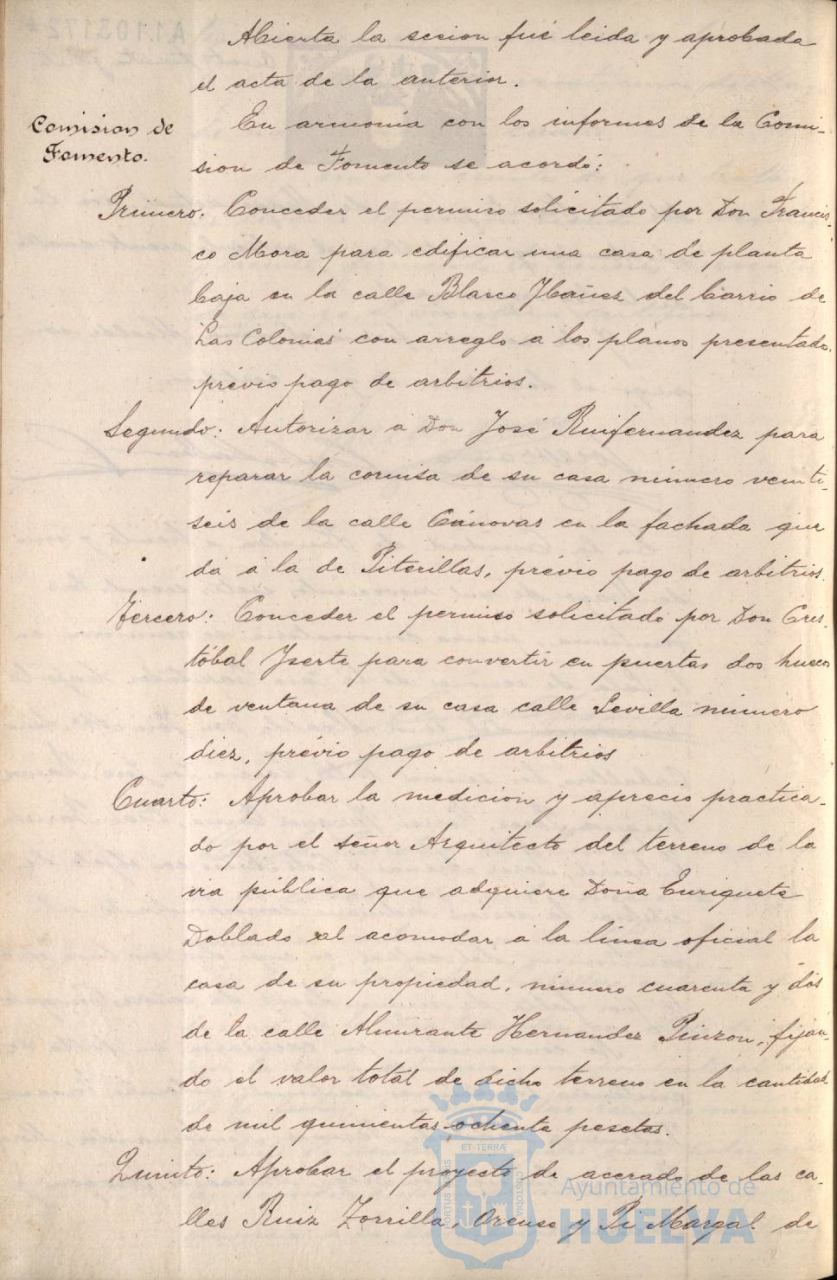 Abierta la sesion fué leida y aprobada
el acta de la anterior.
Comision de
Fomento.
En armonía con los informes de la Comi-
sion de Fomento se acordó:
Primero: Conceder el permiso solicitado por Don Francis-
co Mora para edificar una casa de planta
baja en la calle Blasco Ybañez del barrio de
Las Colonias con arreglo á los planos presentados,
prévio pago de arbitrios.
Segundo: Autorizar á Don José Ruifernandez para
reparar la cornisa de su casa número veinti-
seis de la calle Cánovas en la fachada que
dá á la de Piterillas, prévio pago de arbitrios.
Tercero: Conceder el permiso solicitado por Don Cris-
tóbal Yserte para convertir en puertas dos huecos
de ventana de su casa calle Sevilla número
diez, prévio pago de arbitrios
Cuarto: Aprobar la medicion y aprecio practica-
do por el señor Arquitecto del terreno de la
via pública que adquiere Doña Enriqueta
Doblado al acomodar á la línea oficial la
casa de su propiedad, número cuarenta y dos
de la calle Almirante Hernandez Pinzon, fijan-
do el valor total de dicho terreno en la cantidad
de mil quinientas ochenta pesetas.
Quinto: Aprobar el proyecto de acerado de las ca-
lles Ruiz Zorrilla, Orense y Pi Margal de
ET TERRÆ
PORTUS
CUSTODIA
Ayuntamiento de
HUELVA